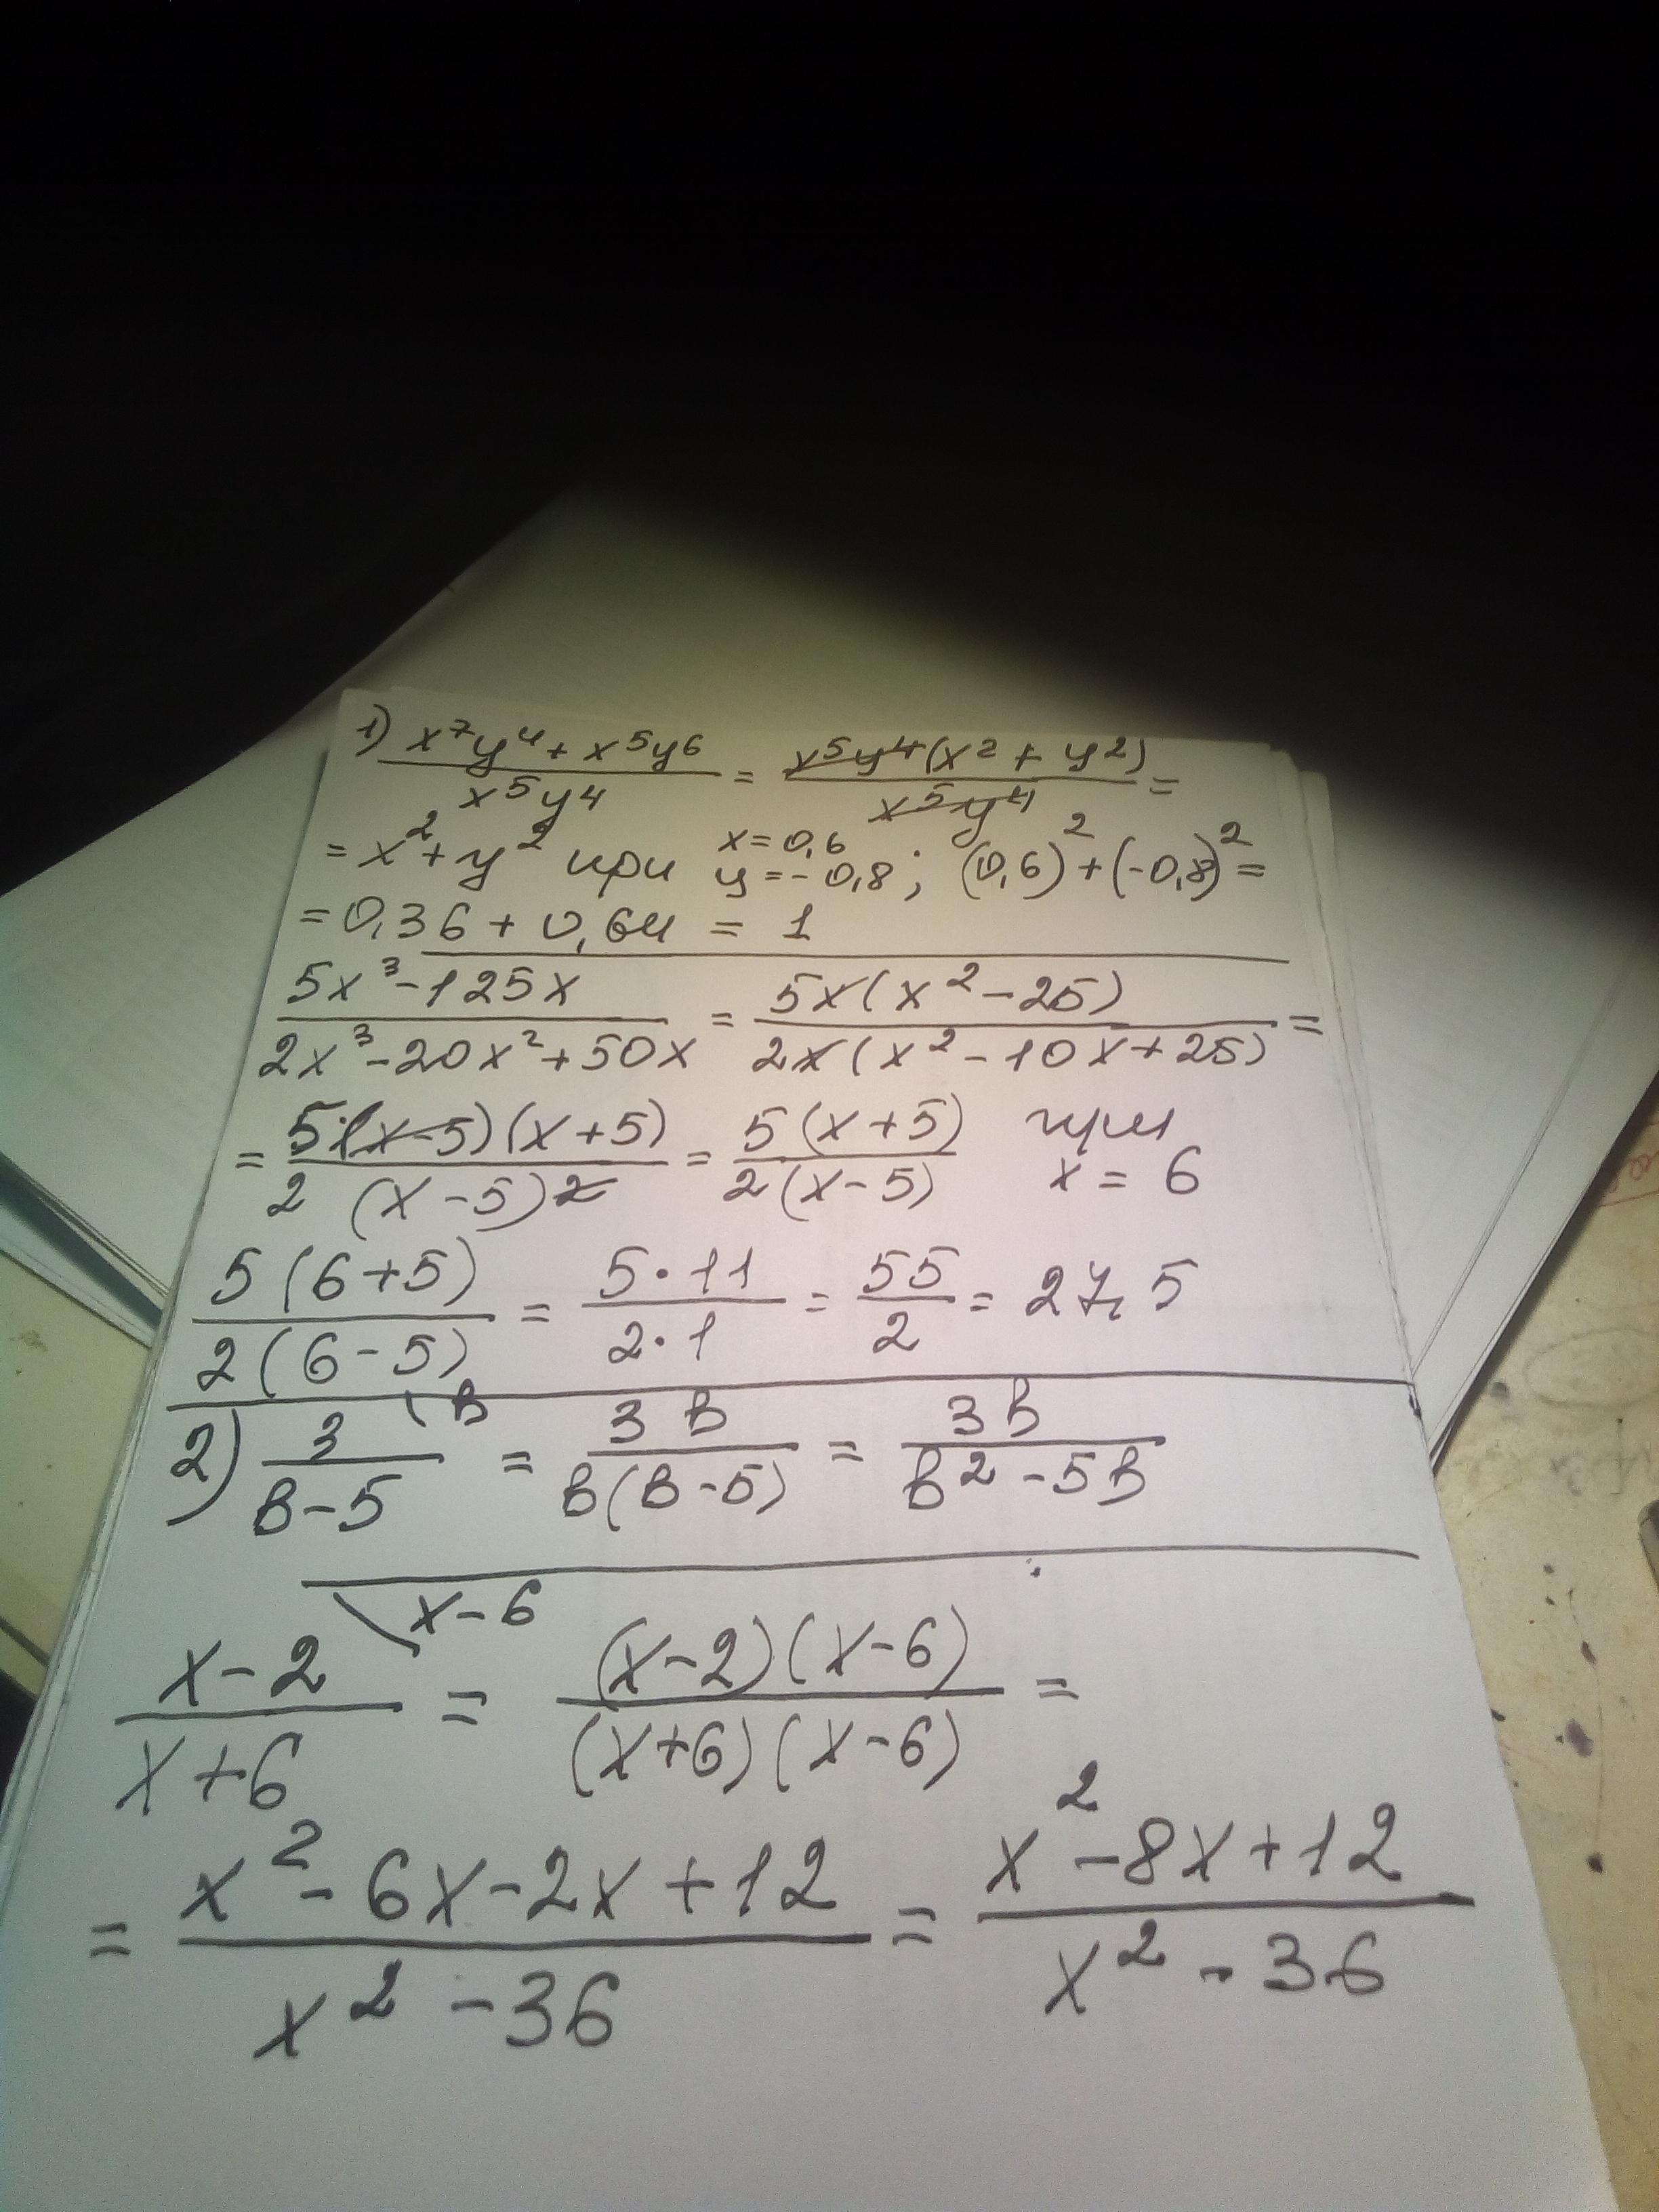 1) (x⁷y⁴ + x⁵y⁶)/(x⁵y⁴) = (x⁵y⁴(x² + y²))/(x⁵y⁴) =
= x² + y² при x = 0,6 y = -0,8; (0,6)² + (-0,8)² =
= 0,36 + 0,64 = 1
(5x³ - 125x)/(2x³ - 20x² + 50x) = (5x(x² - 25))/(2x(x² - 10x + 25)) =
= (5·(x-5)(x+5))/(2 (x-5)²) = (5(x+5))/(2(x-5)) при x = 6
(5(6+5))/(2(6-5)) = (5·11)/(2·1) = 55/2 = 27,5
2) 3/(в-5) \в = 3в/(в(в-5)) = 3в/(в²-5в)
\x-6
(x-2)/(x+6) = ((x-2)(x-6))/((x+6)(x-6)) =
= (x² - 6x - 2x + 12)/(x² - 36) = (x² - 8x + 12)/(x² - 36)